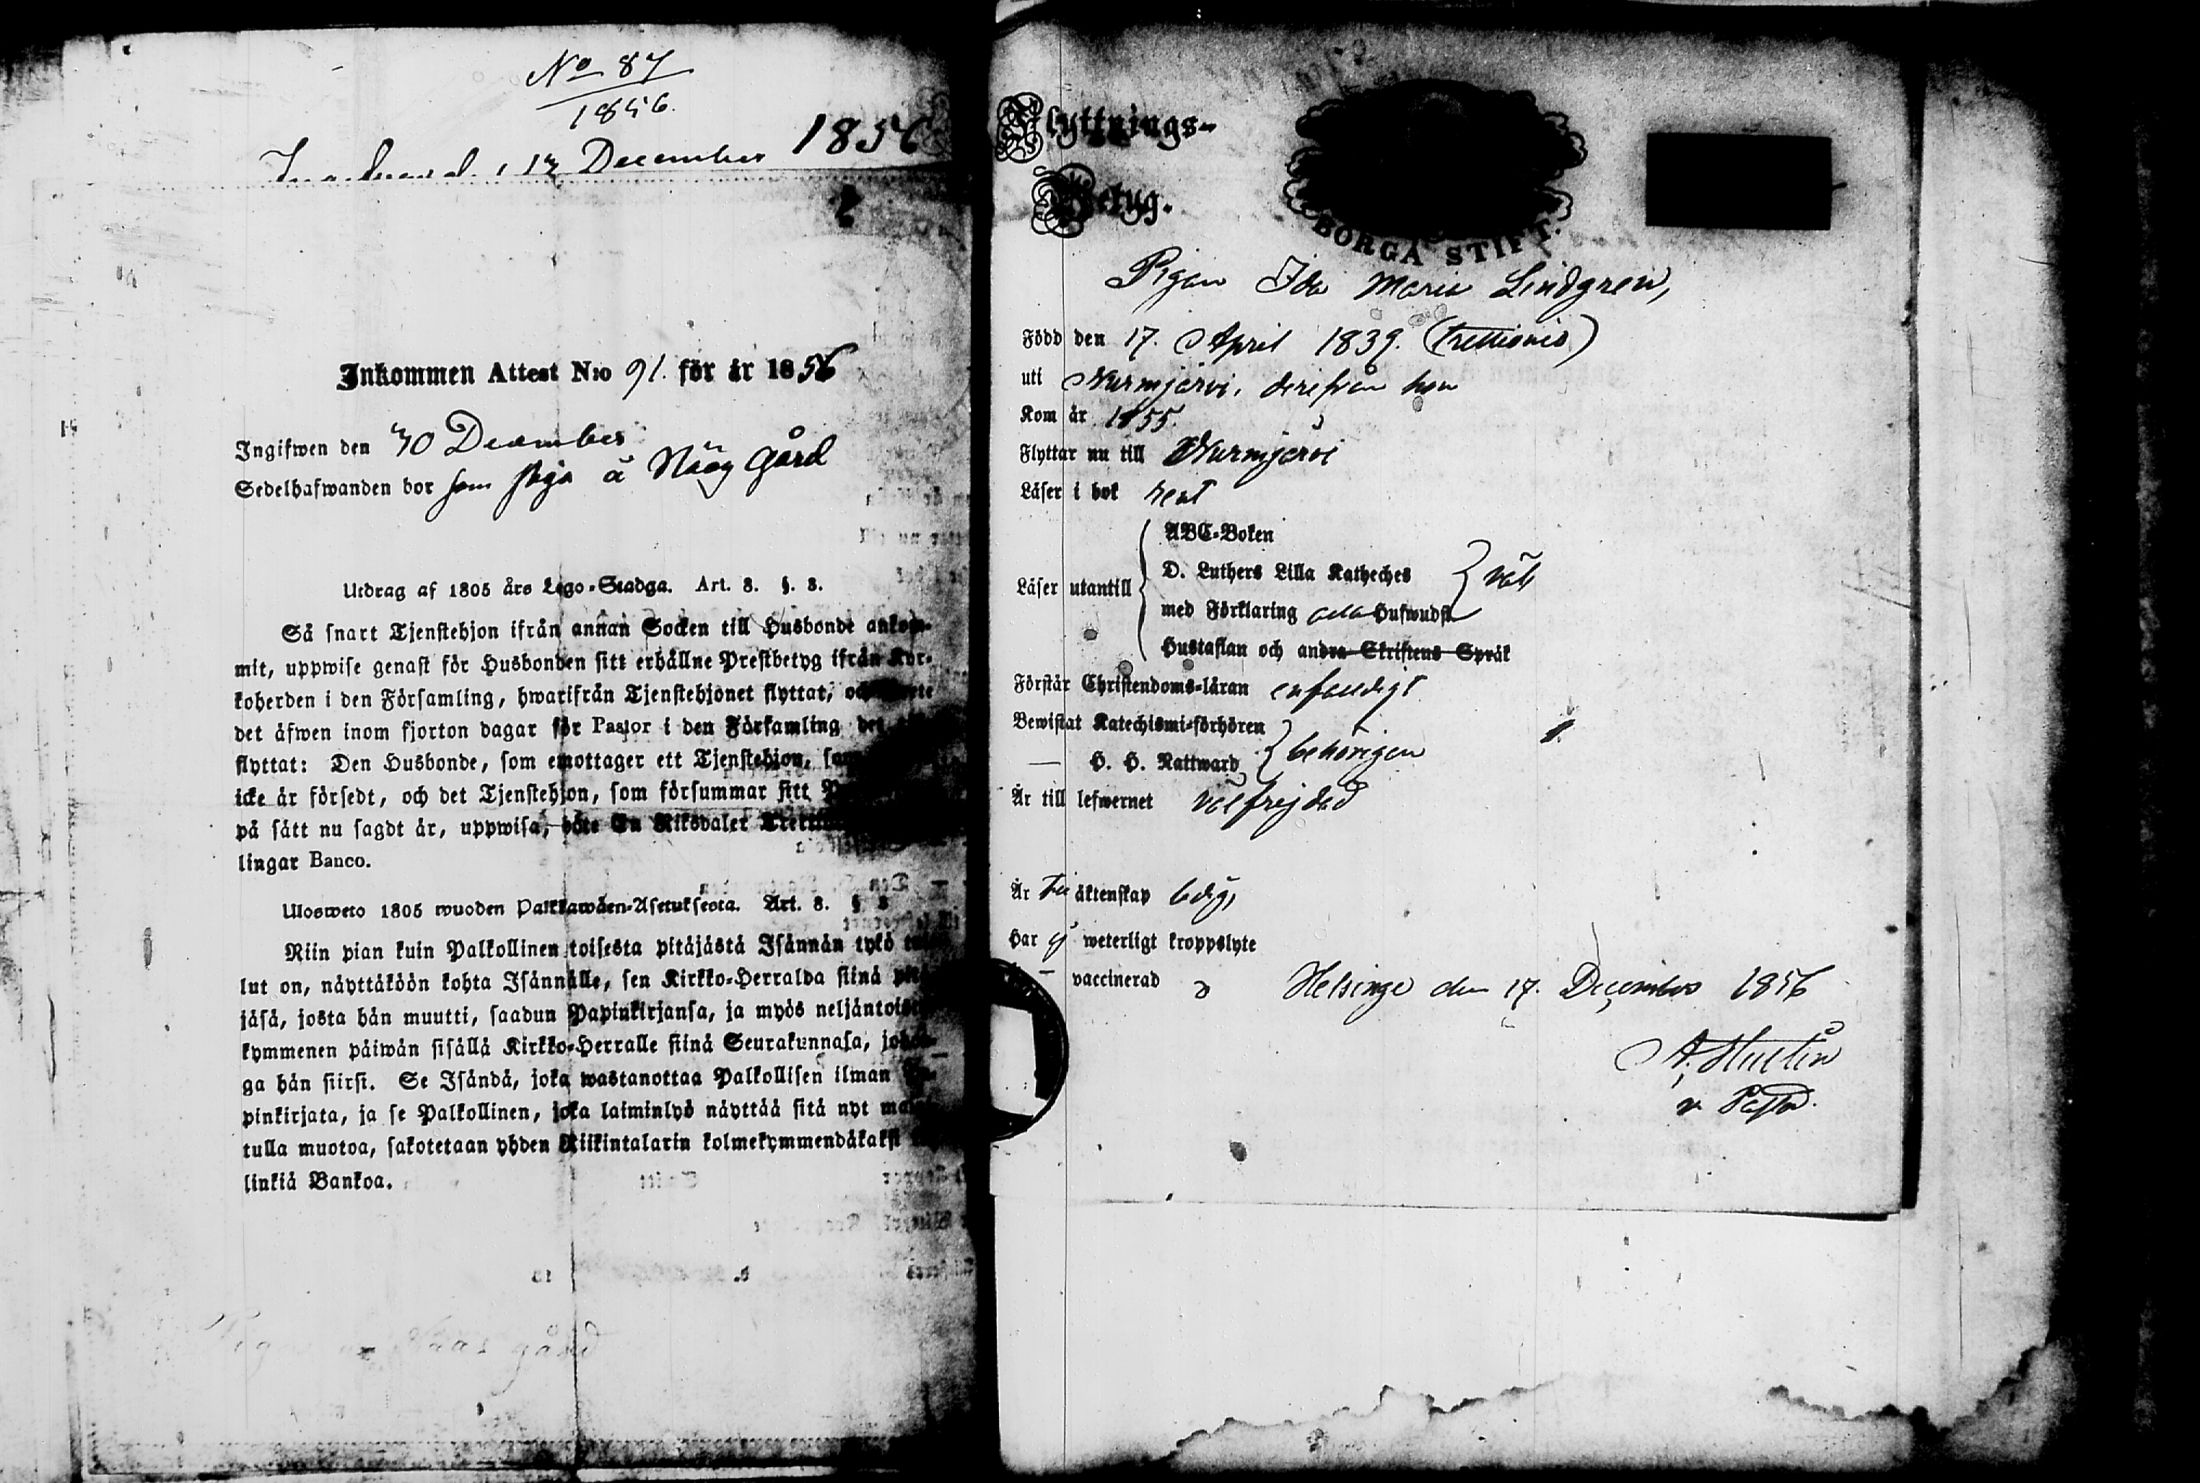 No 87
1856.
12 December 1856
Inkommen Attest N:o 91. för år 1856
Ingifwen den 30 December
Sedelhafwanden bor som piga å Nääs Gård
Utdrag af 1805 års Lego-Stadga. Art. 8. §. 3.
Så snart Tjenstehjon ifrån annan Socken till Husbonde ankom-
mit, uppwise genast för Husbonden sitt erhållne Prestbetyg ifrån Kyr-
koherden i den Församling, hwarifrån Tjenstehjonet flyttat, och
det äfwen inom fjorton dagar för Pastor i den Församling det
flyttat: Den Husbonde, som emottager ett Tjenstehjon, som
icke är försedt, och det Tjenstehjon, som försummar sitt
på sätt nu sagdt är, uppwisa, böte En Riksdaler
lingar Banco.
Ulosweto 1805 wuoden Palkkawäen-Asetuksesta. Art. 8. § 3
Niin pian kuin Palkollinen toisesta pitäjästä Isännän tykö
lut on, näyttäköön kohta Isännälle, sen Kirkko-Herralda siinä
jäsä, josta hän muutti, saadun Papinkirjansa, ja myös neljäntois
kymmenen päiwän sisällä Kirkko-Herralle siinä Seurakunnasa, johon-
ga hän siirsi. Se Isändä, joka wastanottaa Palkollisen ilman Pa-
pinkirjata, ja se Palkollinen, joka laiminlyö näyttää sitä nyt
tulla muotoa, sakotetaan yhden Riikintalarin kolmekymmendäkaksi
linkiä Bankoa.
Pigan Nääs gård
Flyttnings-
Betyg.
BORGÅ STIFT.
Pigan Ida Maria Lindgren,
Född den 17. April 1839. (trettionio)
uti Nurmijärvi, derifrån hon
Kom år 1855.
Flyttar nu till Nurmijärvi
Läser i bok rent
ABC-Boken
D. Luthers Lilla Katheches
Läser utantill väl
med Förklaring Hufwudst
Hustaflan och andra Skriftens Språk
Förstår Christendoms-läran enfaldigt
Bewistat Katechismi-förhören
H. H. Nattward behörigen
Är till lefwernet välfrejdad
Är till äktenskap ledig,
Har ej weterligt kroppslyte
vaccinerad
Helsinge den 17. December 1856
A. Hullin
v. Pastor.